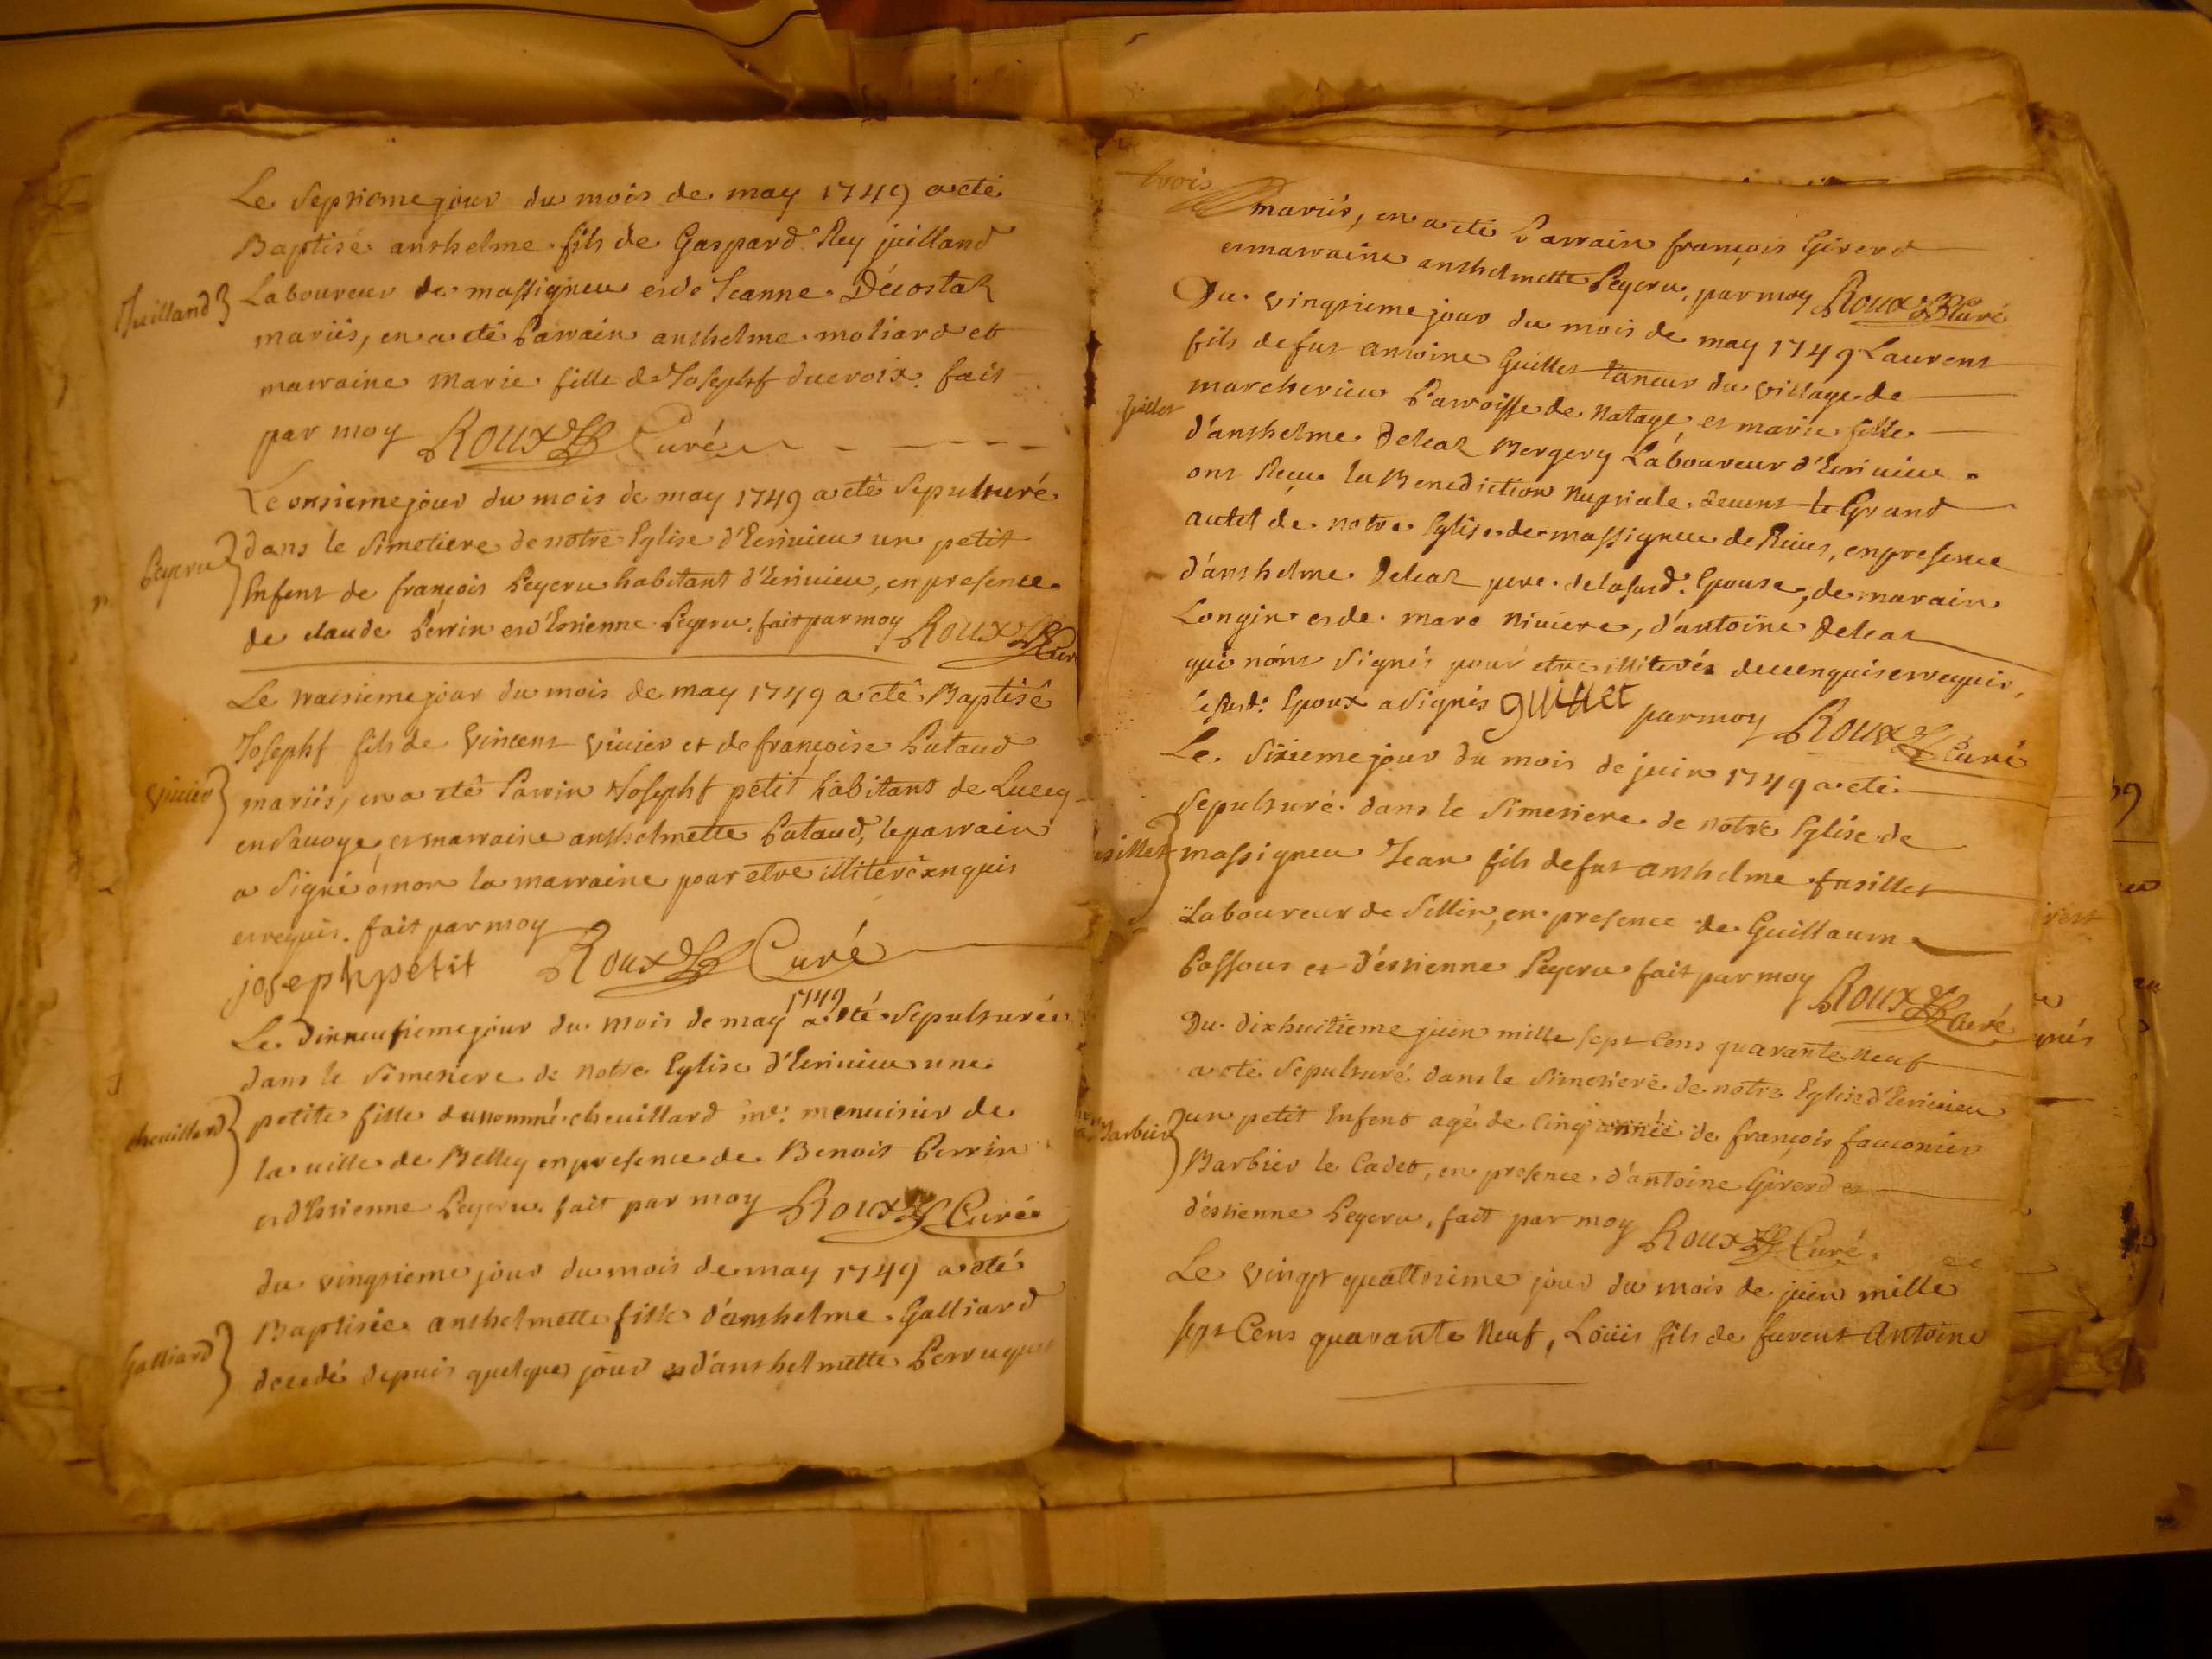 Le septieme jour du mois de may 1749 a eté
Baptisé anthelme fils de Gaspard Rey juilland
Juilland
Laboureur de massigneu et de Jeanne Décostaz
mariés, en a eté Parrain anthelme moliard et
marraine marie fille de Josephf ducroix. fait
par moy Roux Curé
Le onsieme jour du mois de may 1749 a eté sepulturé
Peyeru
dans le simetiere de notre Eglise d'Ecrivieu un petit
Enfent de françois Peyeru habitant d'Ecrivieu, en presence
de claude Perrin et d'Estienne Peyeru. fait par moy Roux Curé
Le traisieme jour du mois de may 1749 a eté Baptisé
Josephf fils de Vincent Vivier et de françoise Putaud
Vivier
mariés, en a eté Parrin Josephf petit habitant de Lucey
en savoye, et marraine anthelmette Putaud, le parrain
a signé et non la marraine pour etre illiteré enquis
et requis. fait par moy
joseph petit Roux Curé
Le dixneufieme jour du mois de may 1749 a eté sepulturée
dans le simetiere de notre Eglise d'Ecrivieu une
chevillard
petite fille du nommé chevillard me: menuisier de
la ville de Belley en presence de Benoit Perrin
et d'Estienne Peyeru. fait par moy Roux Curé
du vingtieme jour du mois de may 1749 a eté
Baptisée anthelmette fille d'anthelme Galliard
Galliard
decedé depuis quelques jour et d'anthelmette Perruquet
trois
mariés, en a eté Parrain françois Girerd
et marraine anthelmette Peyeru, par moy Roux Curé
Du vingtieme jour du mois de may 1749 Laurent
fils de fut antoine Guillet taneur du village de
marcherieu Parroisse de Natage et marie fille
Guillet
d'anthelme Deleaz Bergery Laboureur d'Ecrivieu
ont Reçu la Benediction Nuptiale devent le Grand
autel de notre Eglise de massigneu de Rives, en presence
d'anthelme Deleaz pere de la susd. Epouse, de marain
Longin et de marc Niviere, d'antoine Deleaz
qui n'ont signés pour etre illiterés de ce enquis et requis,
le susd. Epoux a signés guillet par moy Roux Curé
Le sixieme jour du mois de juin 1749 a eté
sepulturé dans le simetiere de notre Eglise de
fusillet
massigneu Jean fils de fut anthelme fusillet
Laboureur de sillin, en presence de Guillaume
Possous et d'éstienne Peyeru fait par moy Roux Curé
Du dixhuitieme juin mille sept Cens quarante neuf
a eté sepulturé dans le simetiere de notre Eglise d'Ecrivieu
Barbier
un petit Enfent agé de Cinq année de françois fauconier
Barbier le Cadet, en presence d'antoine Girerd et
d'éstienne Peyeru, fait par moy Roux Curé
Le vingt quattrieme jour du mois de juin mille
sept Cens quarante Neuf, Loüis fils de furent Antoine